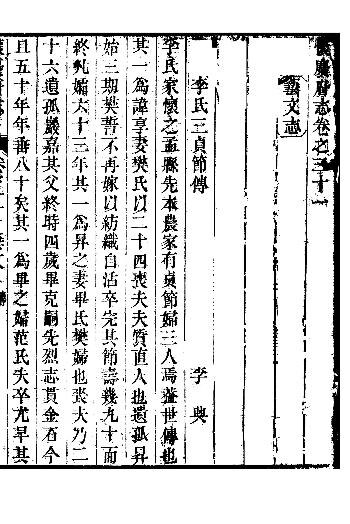 懷慶府志卷之三十一
藝文志
李氏三貞節傳　李典
李氏家懷之孟縣先本農家有貞節婦三人焉蓋世傳也
其一為諱享妻樊氏以二十四喪夫夫質直人也遺孤昇
始三期樊誓不再嫁以紡織自活卒完其節壽幾九十而
終煢孀六十三年其一為昇之妻畢氏樊婦也喪夫乃二
十六遺孤巖嘉其父終時四歲畢克嗣先烈志貫金石今
且五十年年番八十矣其一為畢之婦范氏夫卒尤早其